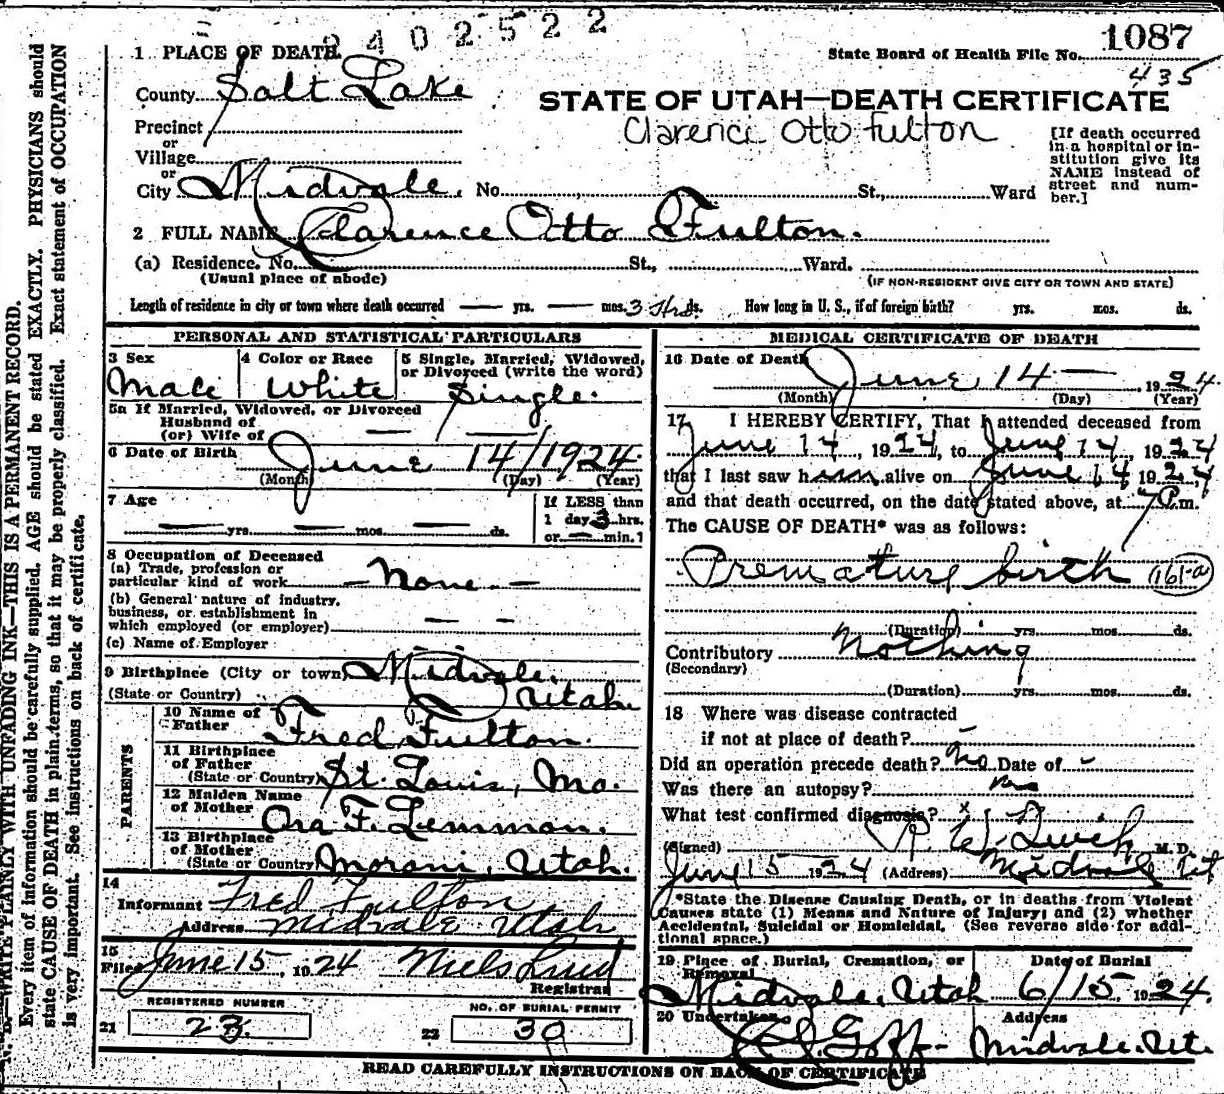 2402522
1087
State Board of Health File No.
435
1 PLACE OF DEATH
County Salt Lake
STATE OF UTAH—DEATH CERTIFICATE
Clarence Otto Fulton
Precinct
or
Village
or
City Midvale. No. St., Ward
[If death occurred
in a hospital or in-
stitution give its
NAME instead of
street and num-
ber.]
2 FULL NAME Clarence Otto Fulton.
(a) Residence. No. St., Ward.
(Usual place of abode)
(IF NON-RESIDENT GIVE CITY OR TOWN AND STATE)
Length of residence in city or town where death occurred — yrs. — mos. 3 Hrs. ds. How long in U. S., if of foreign birth? yrs. mos. ds.
PERSONAL AND STATISTICAL PARTICULARS
3 Sex
Male
4 Color or Race
White
5 Single, Married, Widowed,
or Divorced (write the word)
Single.
5a If Married, Widowed, or Divorced
Husband of
(or) Wife of —
6 Date of Birth June 14/1924
(Month) (Day) (Year)
7 Age
— yrs. — mos. — ds.
If LESS than
1 day 3 hrs.
or — min.1
8 Occupation of Deceased
(a) Trade, profession or
particular kind of work — None —
(b) General nature of industry,
business, or establishment in
which employed (or employer) — —
(c) Name of Employer
9 Birthplace (City or town) Midvale.
(State or Country) Utah.
PARENTS
10 Name of
Father Fred Fulton.
11 Birthplace
of Father
(State or Country) St. Louis, Mo.
12 Maiden Name
of Mother Ora F. Lemmon.
13 Birthplace
of Mother
(State or Country) Moroni, Utah.
14
Informant Fred Fulton
Address Midvale Utah
15
Filed June 15, 1924 Niels Lind
Registrar
REGISTERED NUMBER
21 23.
NO. OF BURIAL PERMIT
22 30
MEDICAL CERTIFICATE OF DEATH
16 Date of Death June 14 — , 1924
(Month) (Day) (Year)
17 I HEREBY CERTIFY, That I attended deceased from
June 14, 1924, to June 14, 1924
that I last saw h alive on June 14 1924
and that death occurred, on the date stated above, at 7 P.m.
The CAUSE OF DEATH* was as follows:
Premature birth 161-a
(Duration) yrs. mos. ds.
Contributory Nothing
(Secondary)
(Duration) yrs. mos. ds.
18 Where was disease contracted
if not at place of death? —
Did an operation precede death? No Date of -
Was there an autopsy? No
What test confirmed diagnosis?
(Signed) M. D.
June 15 1924 (Address) Midvale Ut
*State the Disease Causing Death, or in deaths from Violent
Causes state (1) Means and Nature of Injury; and (2) whether
Accidental, Suicidal or Homicidal. (See reverse side for addi-
tional space.)
19 Place of Burial, Cremation, or
Removal
Date of Burial
Midvale, Utah 6/15 1924.
20 Undertaker
Address
Goff- Midvale. Ut.
READ CAREFULLY INSTRUCTIONS ON BACK OF CERTIFICATE
N. B.—WRITE PLAINLY WITH UNFADING INK—THIS IS A PERMANENT RECORD.
Every item of information should be carefully supplied. AGE should be stated EXACTLY. PHYSICIANS should
state CAUSE OF DEATH in plain terms, so that it may be properly classified. Exact statement of OCCUPATION
is very important. See instructions on back of certificate.